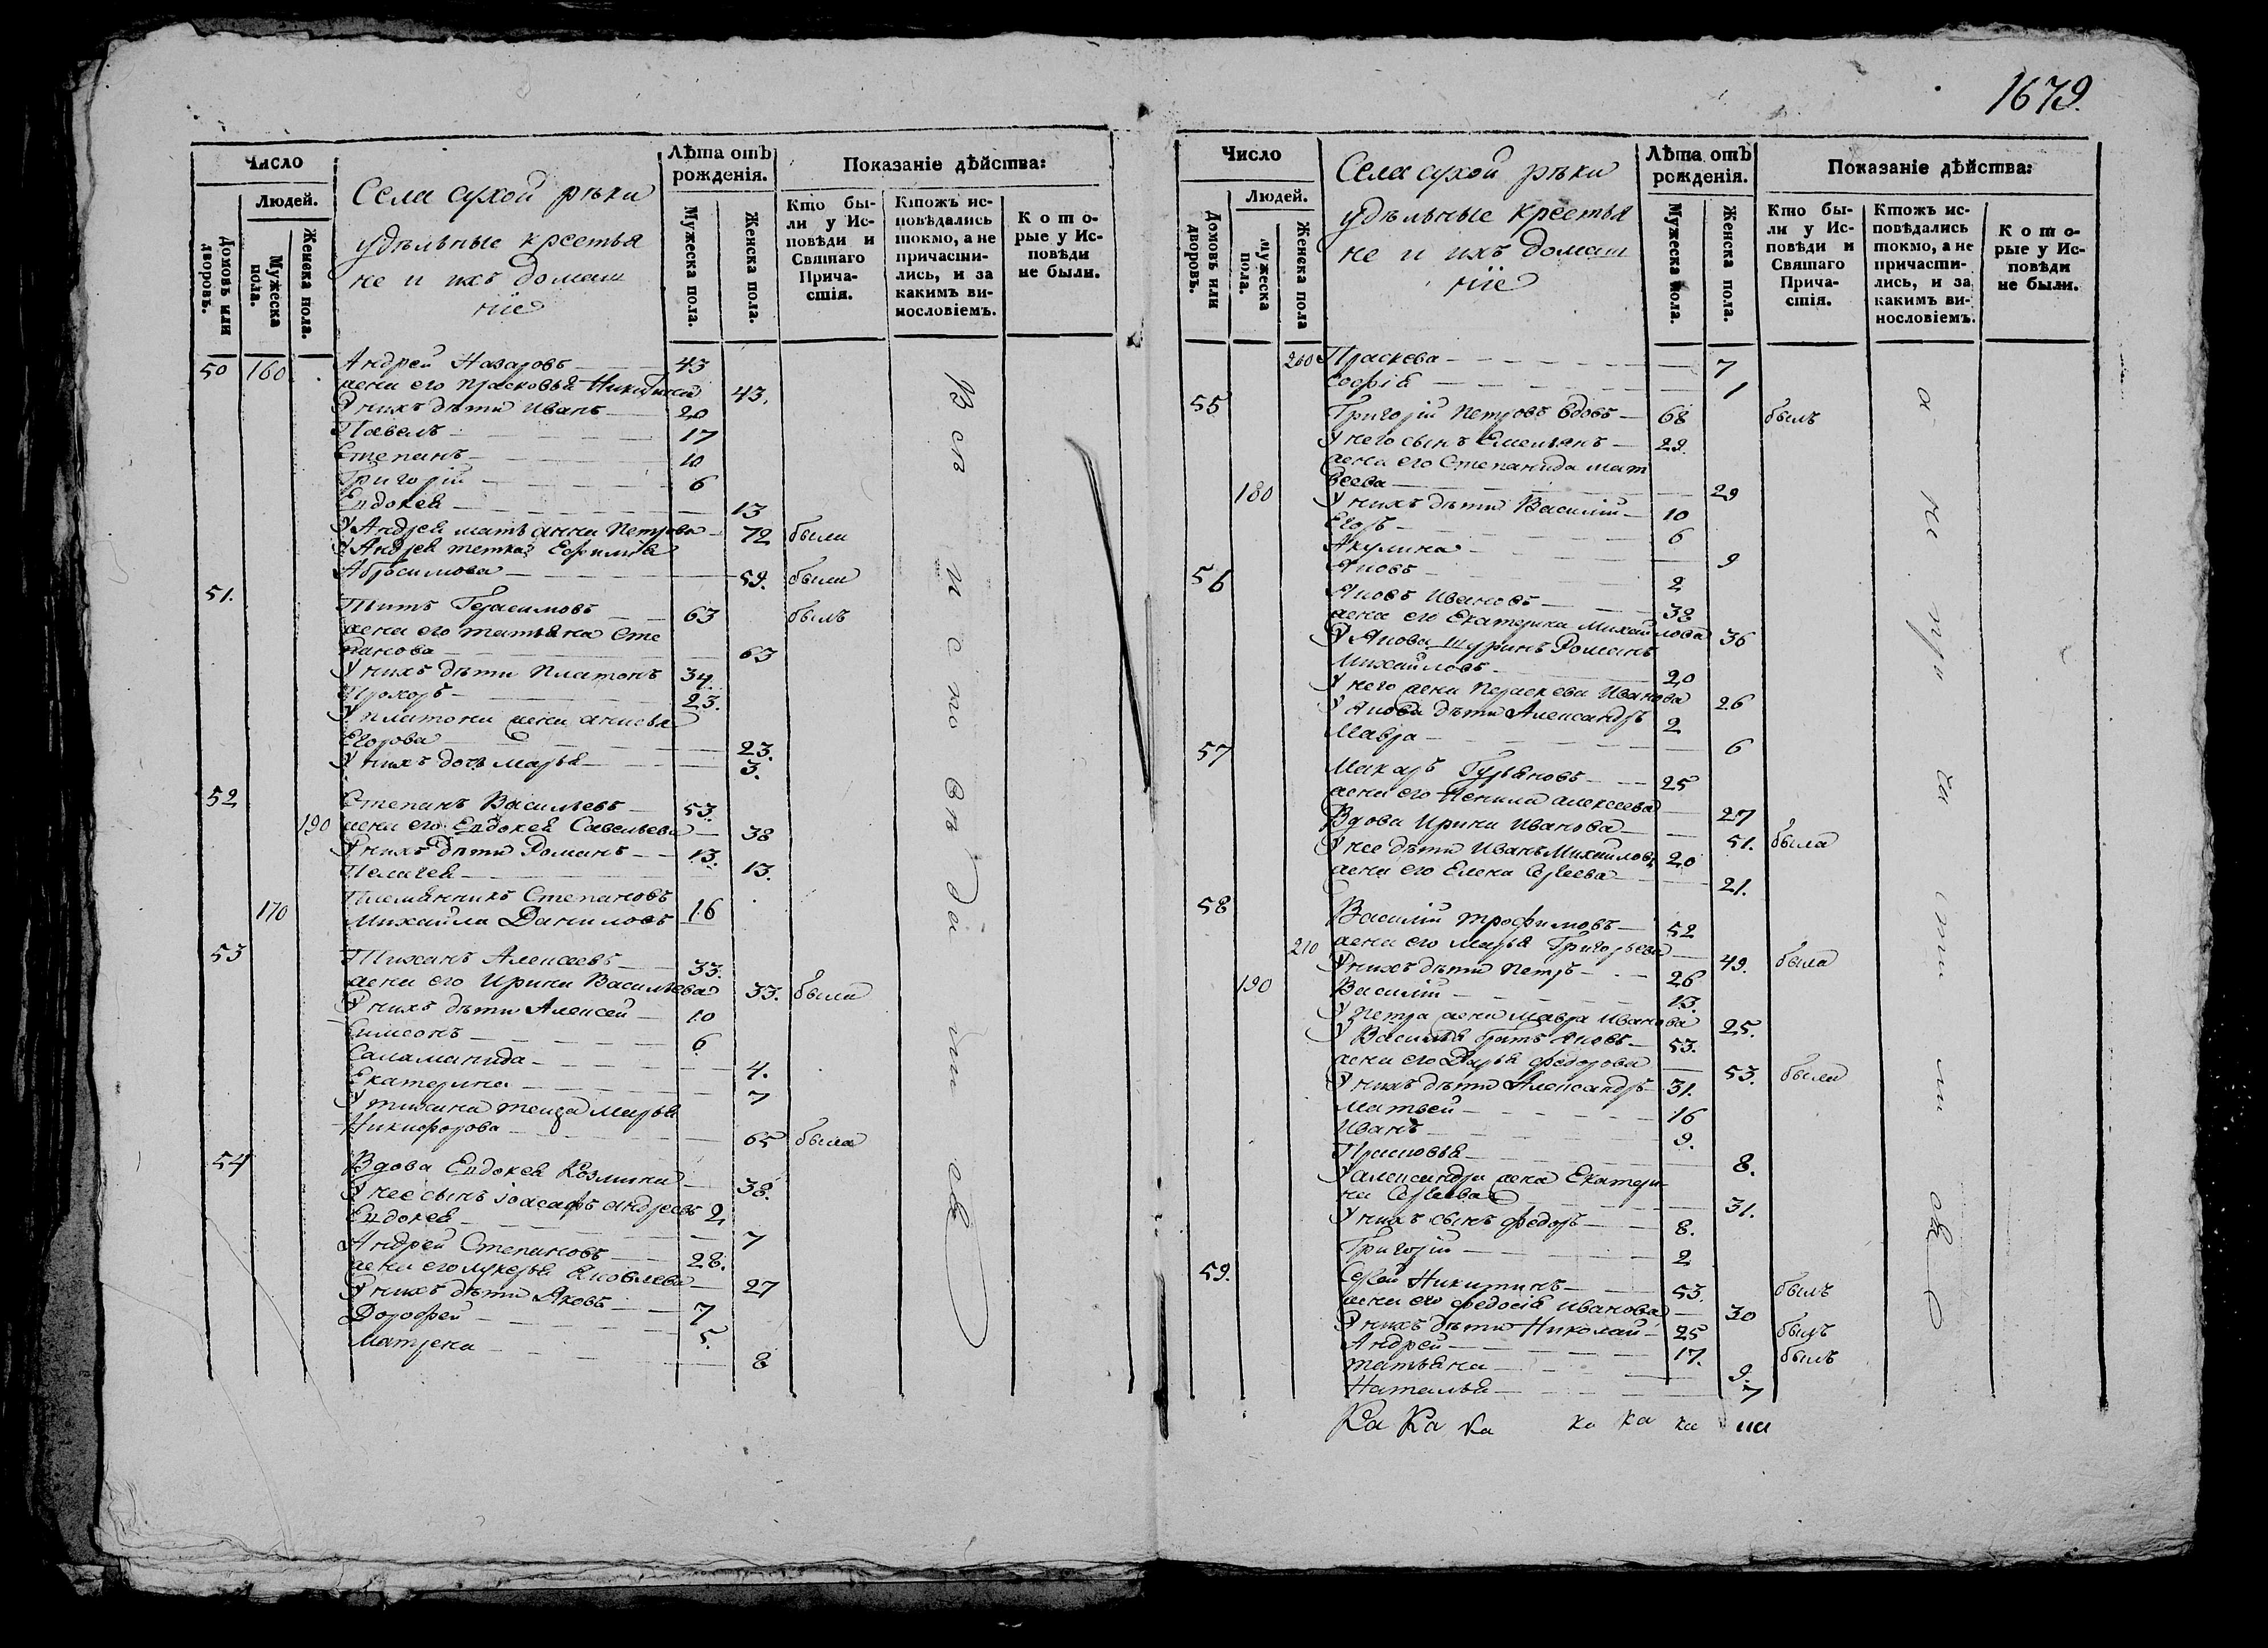 1679.
Число
Людей.
Домовъ или дворовъ.
Мужеска пола.
Женска пола.
Села сухой рѣки
удѣльные крестья
не и ихъ домаш
ніе
Лѣта отъ рожденія.
Мужеска пола.
Женска пола.
Показаніе дѣйства:
Кто бы-
ли у Ис-
повѣди и
Святаго
Прича-
стія.
Ктожъ ис-
повѣдались
токмо, а не
причасти-
лись, и за
какимъ ви-
нословіемъ.
К о т о-
рые у Ис-
повѣди
не были.
50 160 Андрей Назаровъ 43
жена его Прасковья Никитина 43.
У нихъ дѣти Иванъ 20
Павелъ 17
Степанъ 10
Григорій 6
Евдокея 13
У Андрея мать Анна Петрова 72 была
У Андрея тетка Ефимія
Абросимова 59. была
51. Титъ Герасимовъ 63 былъ
жена его татьяна Сте
панова 63
У нихъ дѣти Платонъ 34.
Прохоръ 23.
У платона жена анисья
Егорова 23.
У нихъ дочь марья 3.
52 Степанъ Васильевъ 53.
190 жена его Евдокея Савельева 38
У нихъ дѣти Романъ 13.
Пелагея 13.
Племянникъ Степановъ
170 Михайла Даниловъ 16
53 Тиханъ Алексеевъ 33.
жена его Ирина Васильева 33. была
У нихъ дѣти Алексей 10
Симеонъ 6
Саламанида 4.
Екатерина 7
У тихана теща Марья
Никифорова 65 была
54 Вдова Евдокея Козмина 38.
У нее сынъ Іоасафъ андреевъ 2
Евдокея 7
Андрей Степановъ 28.
жена его лукерья Яковлева 27
У нихъ дѣти Яковъ 7
Дорофей 5.
Матрена 8
В с ѣ и с п о в ѣ д а
Число
Людей.
Домовъ или дворовъ.
Мужеска пола.
Женска пола
Села сухой рѣки
удѣльные крестья
не и ихъ домаш
ніе
Лѣта отъ рожденія.
Мужеска пола.
Женска пола.
Показаніе дѣйства:
Кто бы-
ли у Ис-
повѣди и
Святаго
Прича-
стія.
Ктожъ ис-
повѣдались
токмо, а не
причасти-
лись, и за
какимъ ви-
нословіемъ.
К о т о-
рые у Ис-
повѣди
не были.
200 Праскева 7
Софія 1
55 Григорій Петровъ вдовъ 68 былъ
У него сынъ Емельянъ 29.
жена его Степанида мат
веева 29
180 У нихъ дѣти Василій 10
Егоръ 6
Акулина 9
Яковъ 2
56 Яковъ Ивановъ 38
жена его Екатерина Михайлова 36
У Якова шуринъ Романъ
Михайловъ 20
У него жена Праскева Иванова 26
У Якова дѣти Александръ 2
Мавра 6
57 Макаръ Гурьяновъ 25
жена его Ненила алексеева 27
Вдова Ирина Иванова 51. была
У нее дѣти Иванъ Михайловъ 20
жена его Елена Сергеева 21.
58 Василій трофимовъ 52
210 жена его марья Григорьева 49. была
У нихъ дѣти Петръ 26
190 Василій 13.
У Петра жена мавра Иванова 25.
У Василья братъ Яковъ 53.
жена его Дарья федорова 53. была
У нихъ дѣти Александръ 31.
Матвей 16
Иванъ 9.
Прасковья 8.
У александра жена Екатери
на Сергеева 31.
У нихъ сынъ федоръ 8.
Григорій 2
59. Сергей Никитинъ 53. былъ
жена его федосія иванова 30
У нихъ дѣти Николай 25 былъ
Андрей 17. былъ
татьяна 9.
Наталья 7
а н е п р и ч а с т и
Ка Ка ка ка ка ка